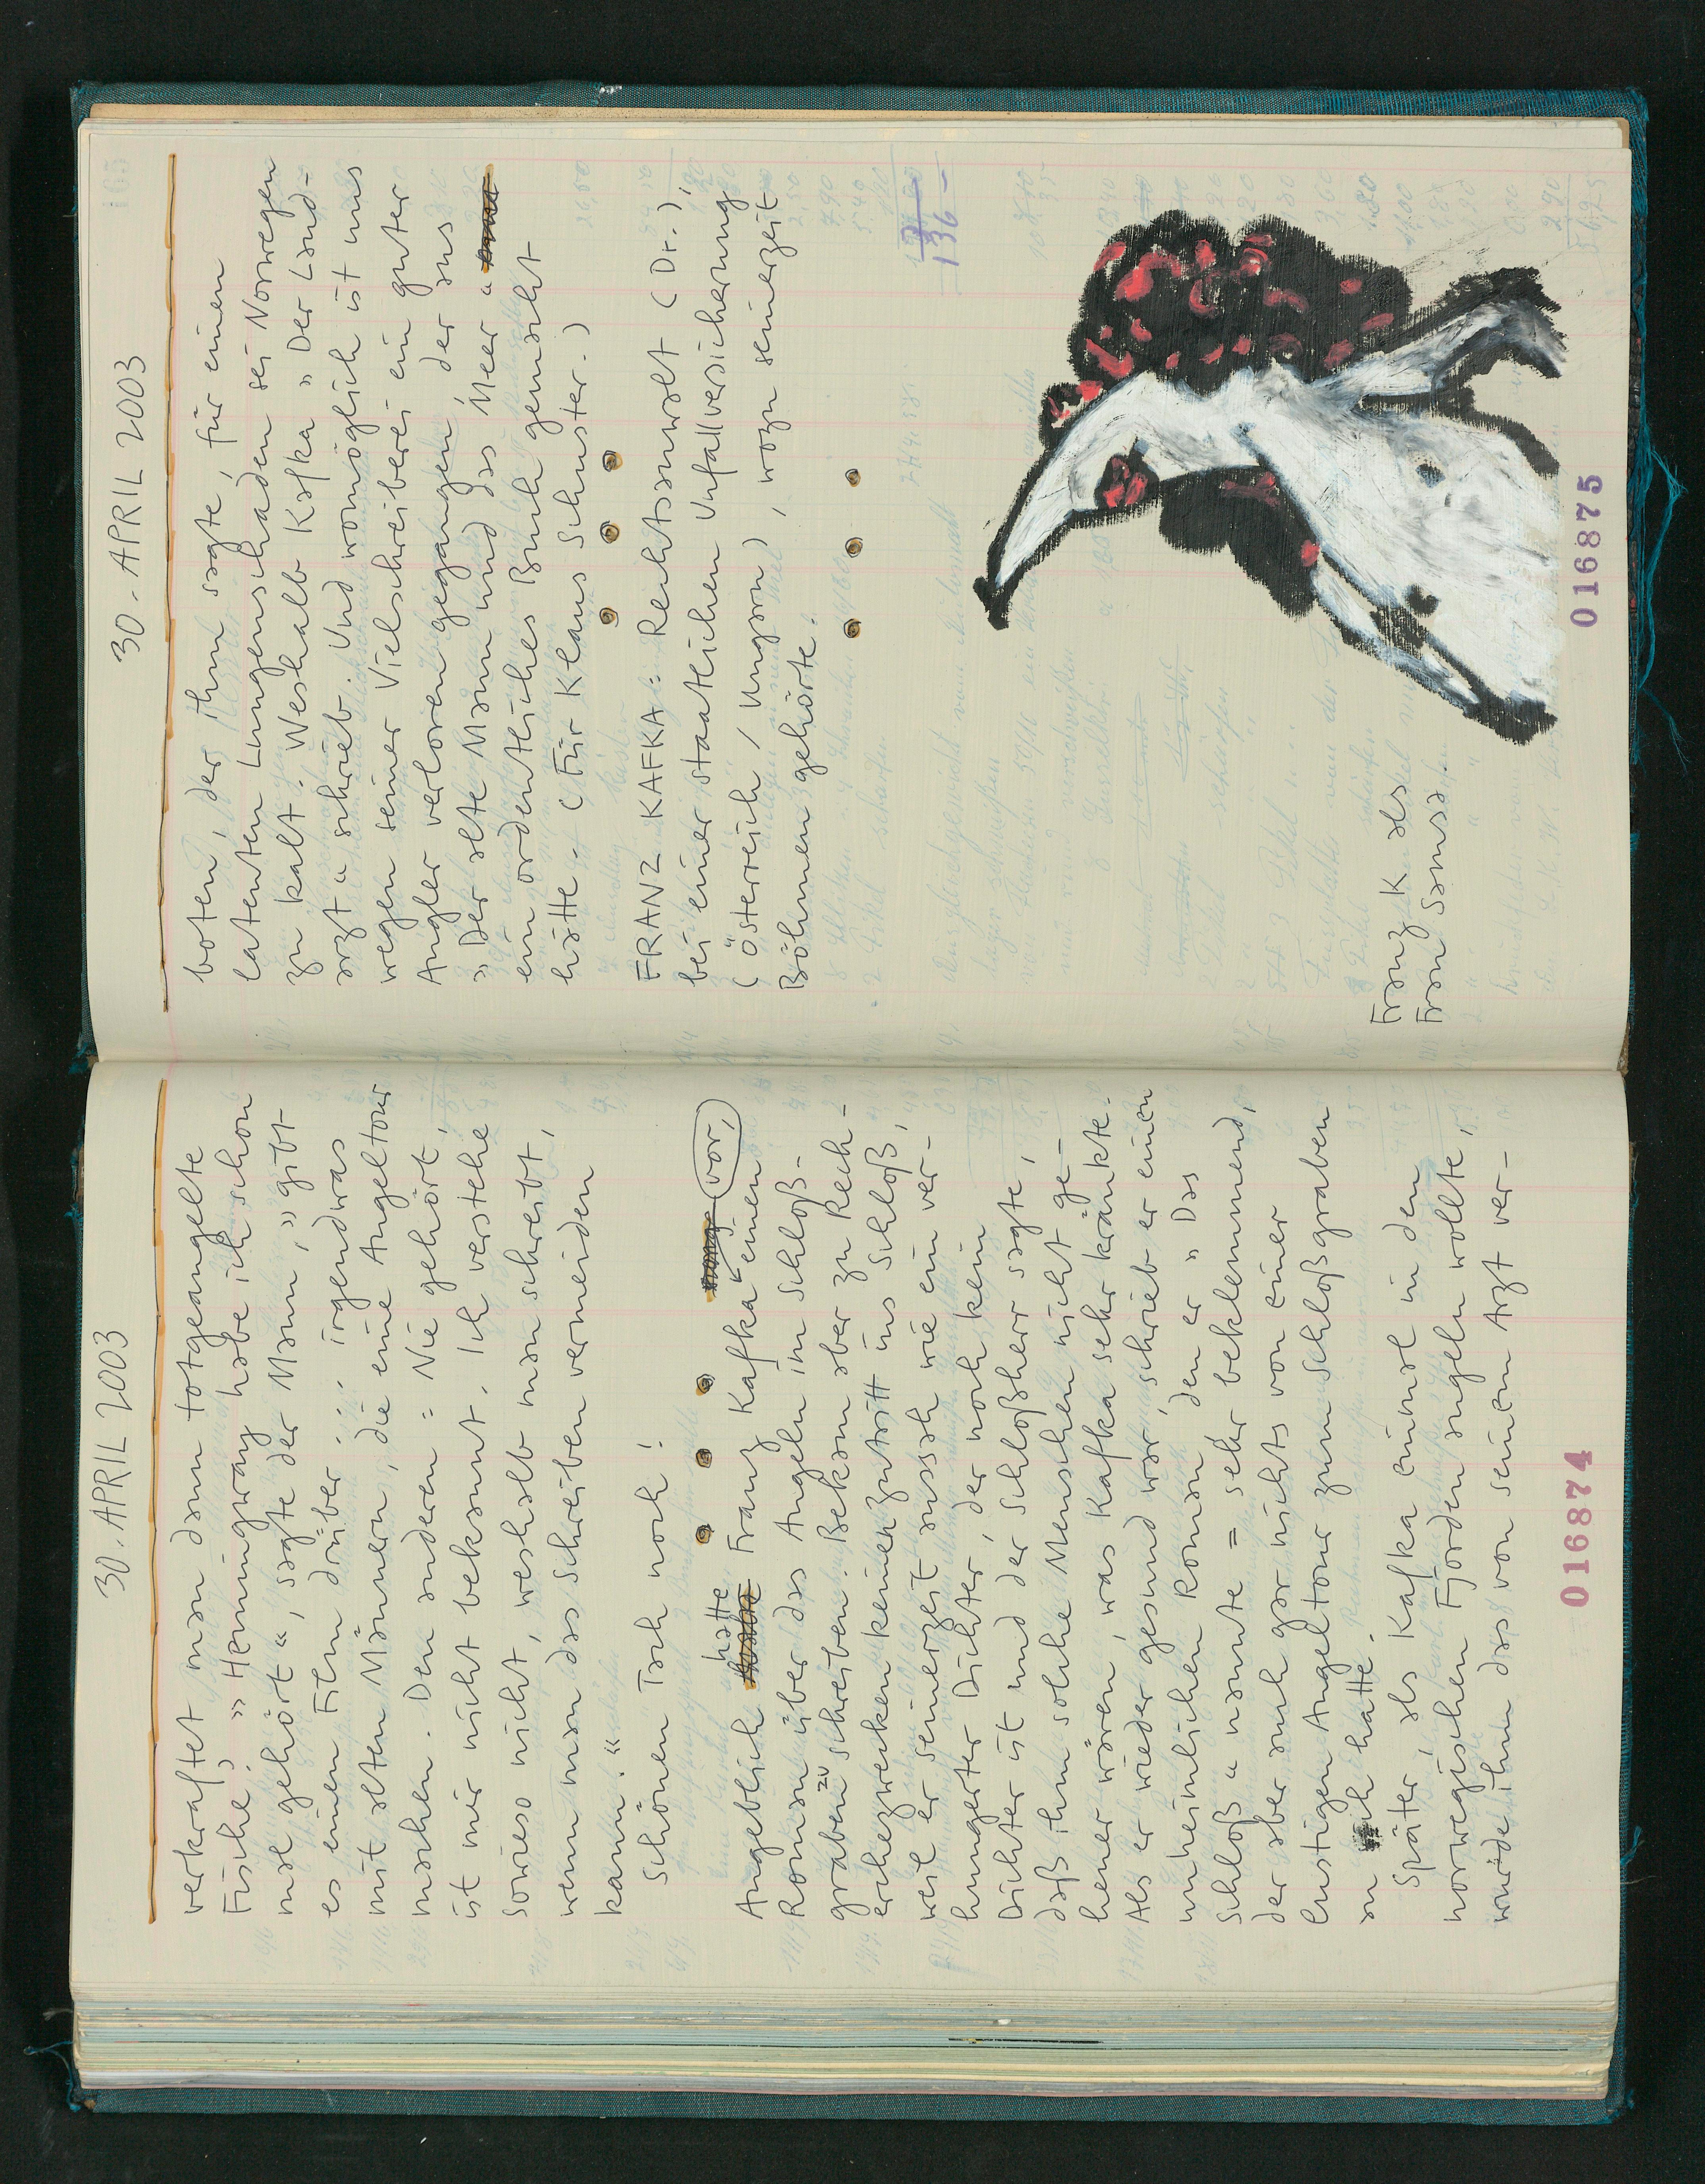 30. APRIL 2003
verkraftet man dann totgeangelte
Fische? » Hemmingway habe ich schon
mal gehört“, sagte der Mann, » gibt
es einen Film drüber ... irgendwas
mit alten Männern, die eine Angeltour
machen. Den anderen = Nie gehört,
ist mir nicht bekannt. Ich verstehe
sowieso nicht, weshalb man schreibt,
wenn man das Schreiben vermeiden
kann.“
Schönen Tach noch!
Angeblich hatte Franz Kafka vor, einen
Roman über das Angeln im Schloß-
graben zu schreiben. Bekam aber zu Rech-
erchezwecken keinen Zutritt ins Schloß,
weil er seinerzeit aussah wie ein ver-
hungerter Dichter, der noch kein
Dichter ist und der Schloßherr sagte,
daß ihm solche Menschen nicht ge-
heuer wären, was Kafka sehr kränkte.
Als er wieder gesund war, schrieb er einen
unheimlichen Roman, den er » Das
Schloß “ nannte = sehr beklemmend,
der aber auch gar nichts von einer
lustigen Angeltour zum Schloßgraben
an sich hatte.
Später, als Kafka einmal in den
norwegischen Fjorden angeln wollte,
wurde ihm das von seinem Arzt ver-
016874
30. APRIL 2003
boten, der ihm sagte, für einen
latenten Lungenschaden sei Norwegen
zu kalt. Weshalb Kafka » Der Land-
arzt “ schrieb. Und womöglich ist uns
wegen seiner Vielschreiberei ein guter
Angler verloren gegangen, der aus
» Der alte Mann und das Meer “
ein ordentliches Buch gemacht
hätte. (Für Klaus Schuster.)
FRANZ KAFKA = Rechtsanwalt (Dr.),
bei einer staatlichen Unfallversicherung
(Österreich / Ungarn), wozu seinerzeit
Böhmen gehörte.
136
Franz K als
Frau Samsa.
016875